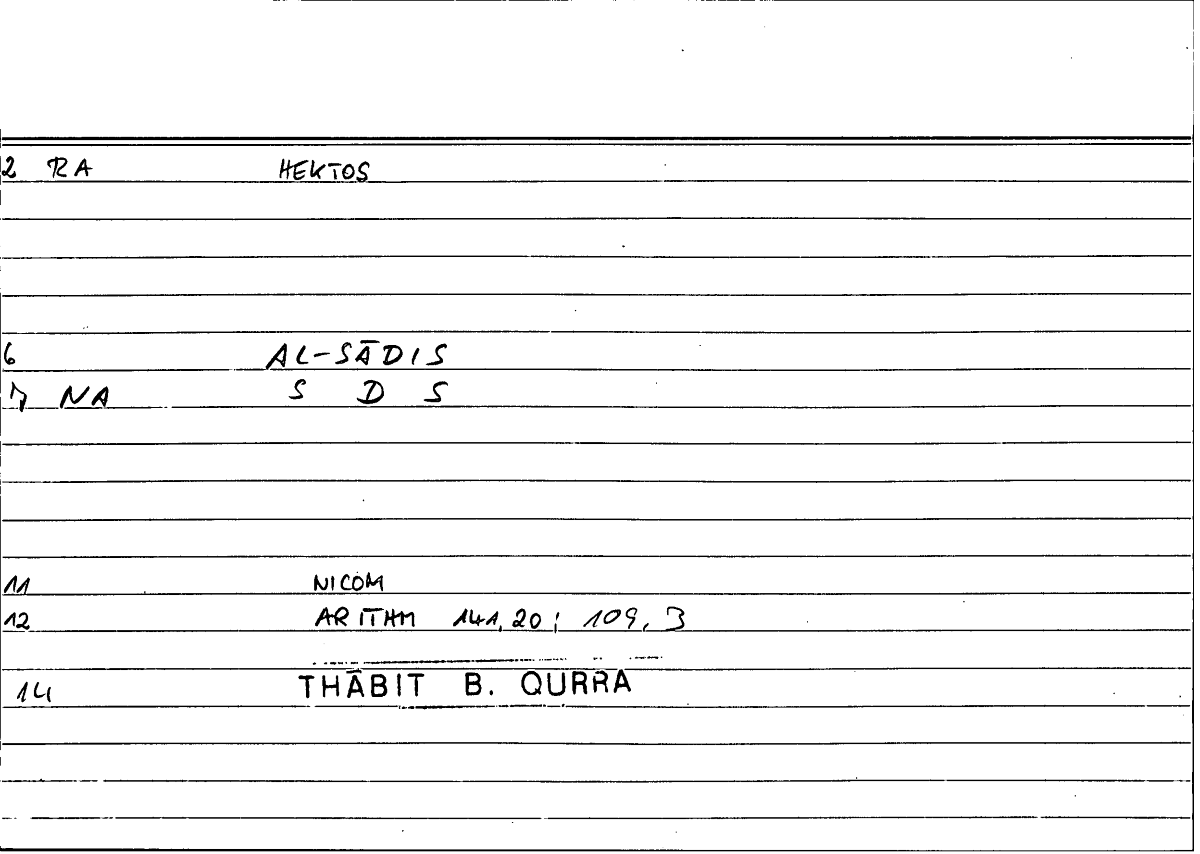 2 RA HEKTOS
6 AL-SĀDIS
7 NA S D S
11 NICOM
12 ARITHM 141,20; 109,3
14 THĀBIT B. QURRA